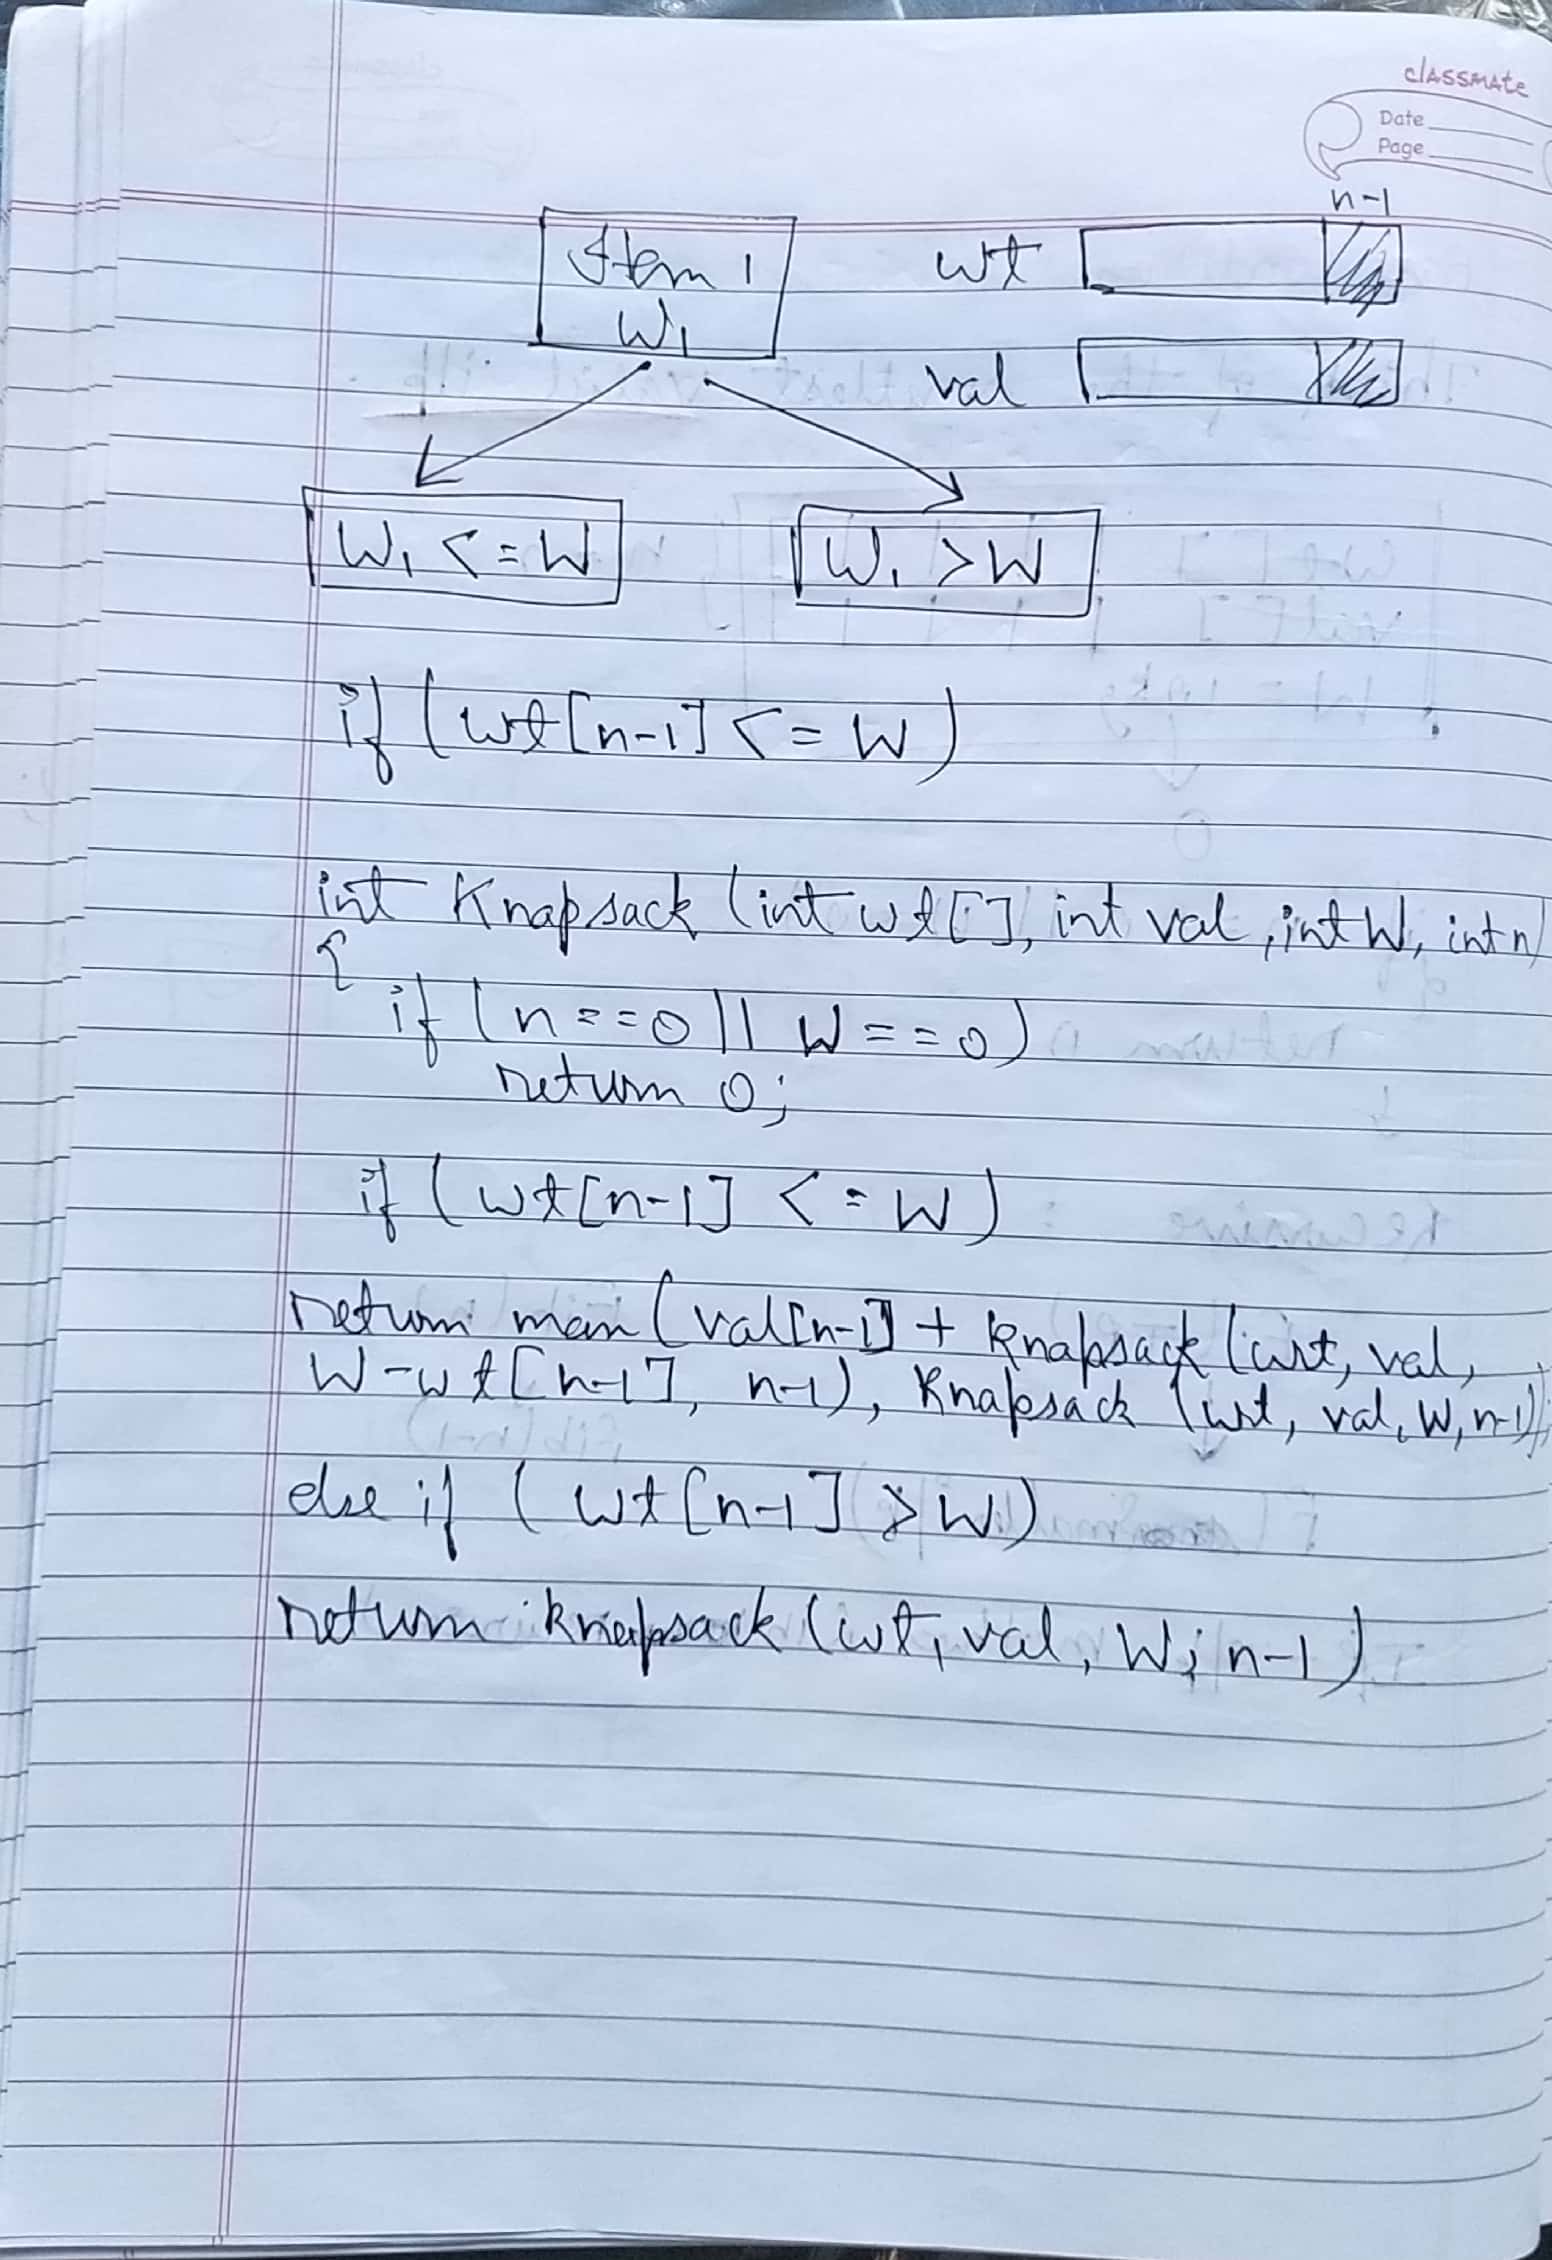 classmate
Date
Page
n-1
Item 1
W1
wt
val
W1 <= W
W1 > W
if (wt[n-1] <= W)
int Knapsack (int wt[], int val, int W, int n)
{
if (n==0 || W==0)
return 0;
if (wt[n-1] <= W)
return max (val[n-1] + Knapsack (wt, val,
W-wt[n-1], n-1), Knapsack (wt, val, W, n-1));
else if (wt[n-1] > W)
return knapsack (wt, val, W, n-1)